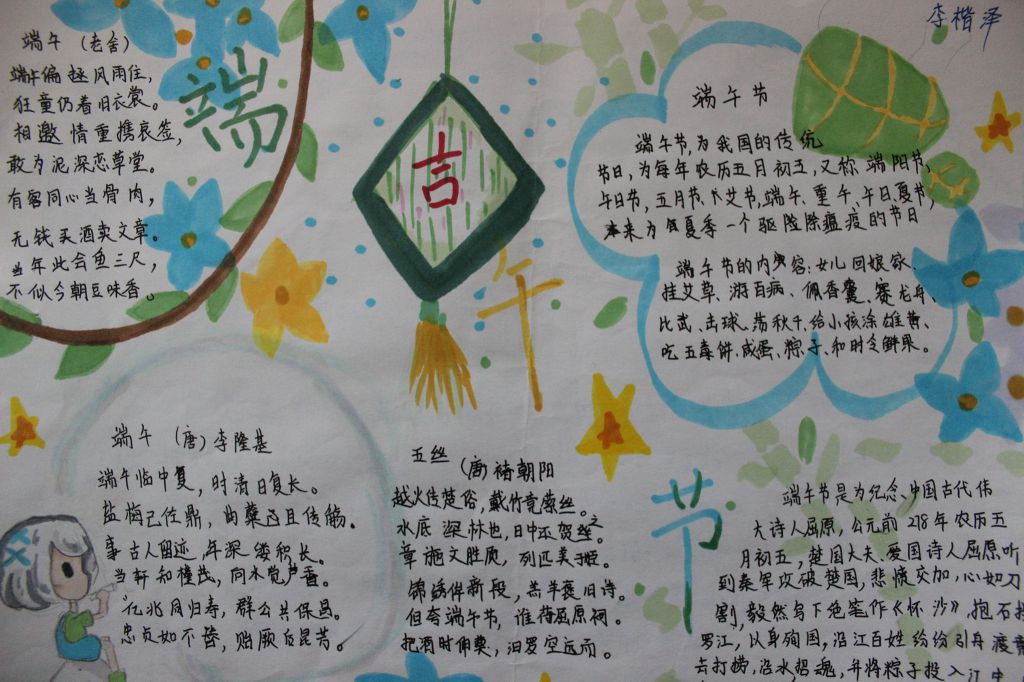 李楷泽
端午
吉
节
端午 (老舍)
端午偏逢风雨狂,
狂童仍着旧衣裳。
相邀情重携衰签,
敢为泥深恋草堂。
有客同心当骨肉,
无钱买酒卖文章。
当年此会鱼三尺,
不似今朝豆味香。
端午节
端午节,为我国的传统
节日,为每年农历五月初五,又称端阳节,
午日节,五月节、艾节,端午、重午、午日、夏节,
本来为夏季一个驱除瘟疫的节日
端午节的内容:女儿回娘家、
挂艾草、游百病、佩香囊、赛龙舟、
比武、击球、荡秋千、给小孩涂雄黄、
吃五毒饼、咸蛋、粽子、和时令鲜果。
端午 (唐) 李隆基
端午临中夏,时清日复长。
盐梅已佐鼎,曲糵且传觞。
事古人留迹,年深缕积长。
当轩知槿茂,向水觉芦香。
亿兆同归寿,群公共保昌。
忠贞如不替,贻厥后昆芳。
五丝 (唐) 褚朝阳
越人传楚俗,截竹竞萦丝。
水底深休也,日中还贺之。
章施文胜质,列匹美于姬。
锦绣侔新段,羔羊寝旧诗。
但夸端午节,谁荐屈原祠。
把酒时伸奠,汨罗空远而。
端午节是为纪念、中国古代伟
大诗人屈原,公元前278年农历五
月初五,楚国大夫、爱国诗人屈原听
到秦军攻破楚国,悲愤交加,心如刀
割,毅然写下绝笔作《怀沙》,抱石投
罗江,以身殉国,沿江百姓纷纷引舟
去打捞,沿水招魂,并将粽子投入江中